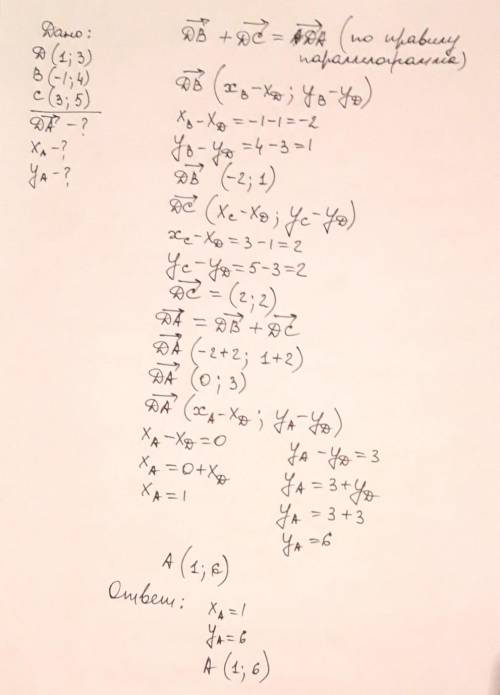 Дано:
D(1;3)
B(-1;4)
C(3;5)
DA→ -?
x_A -?
y_A -?
DB→ + DC→ = DA→ (по правилу
параллелограмма)
DB→ (x_B - x_D; y_B - y_D)
x_B - x_D = -1-1 = -2
y_B - y_D = 4-3 = 1
DB→ (-2; 1)
DC→ (x_C - x_D; y_C - y_D)
x_C - x_D = 3-1 = 2
y_C - y_D = 5-3 = 2
DC→ = (2; 2)
DA→ = DB→ + DC→
DA→ (-2+2; 1+2)
DA→ (0; 3)
DA→ (x_A - x_D; y_A - y_D)
x_A - x_D = 0
x_A = 0 + x_D
x_A = 1
y_A - y_D = 3
y_A = 3 + y_D
y_A = 3 + 3
y_A = 6
A (1; 6)
Ответ:
x_A = 1
y_A = 6
A (1; 6)